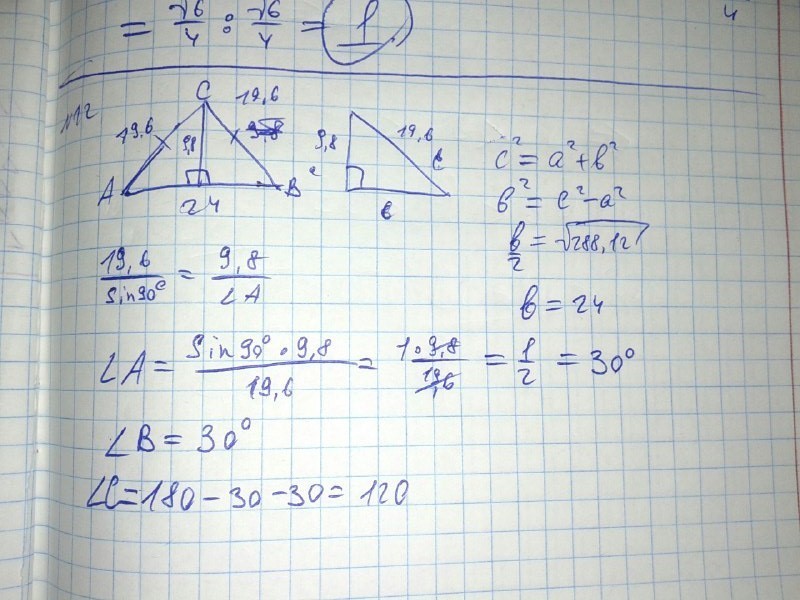 = √6/4 : √6/4 = 1
4
N12
C
19,6
19,6
9,8
9,8
A
B
24
9,8
19,6
c
в
c² = a² + в²
в² = c² - a²
в/2 = √288,12
в = 24
19,6/sin90° = 9,8/∠A
∠A = sin90° • 9,8/19,6 = 1 • 9,8/19,6 = 1/2 = 30°
∠B = 30°
∠C = 180 - 30 - 30 = 120